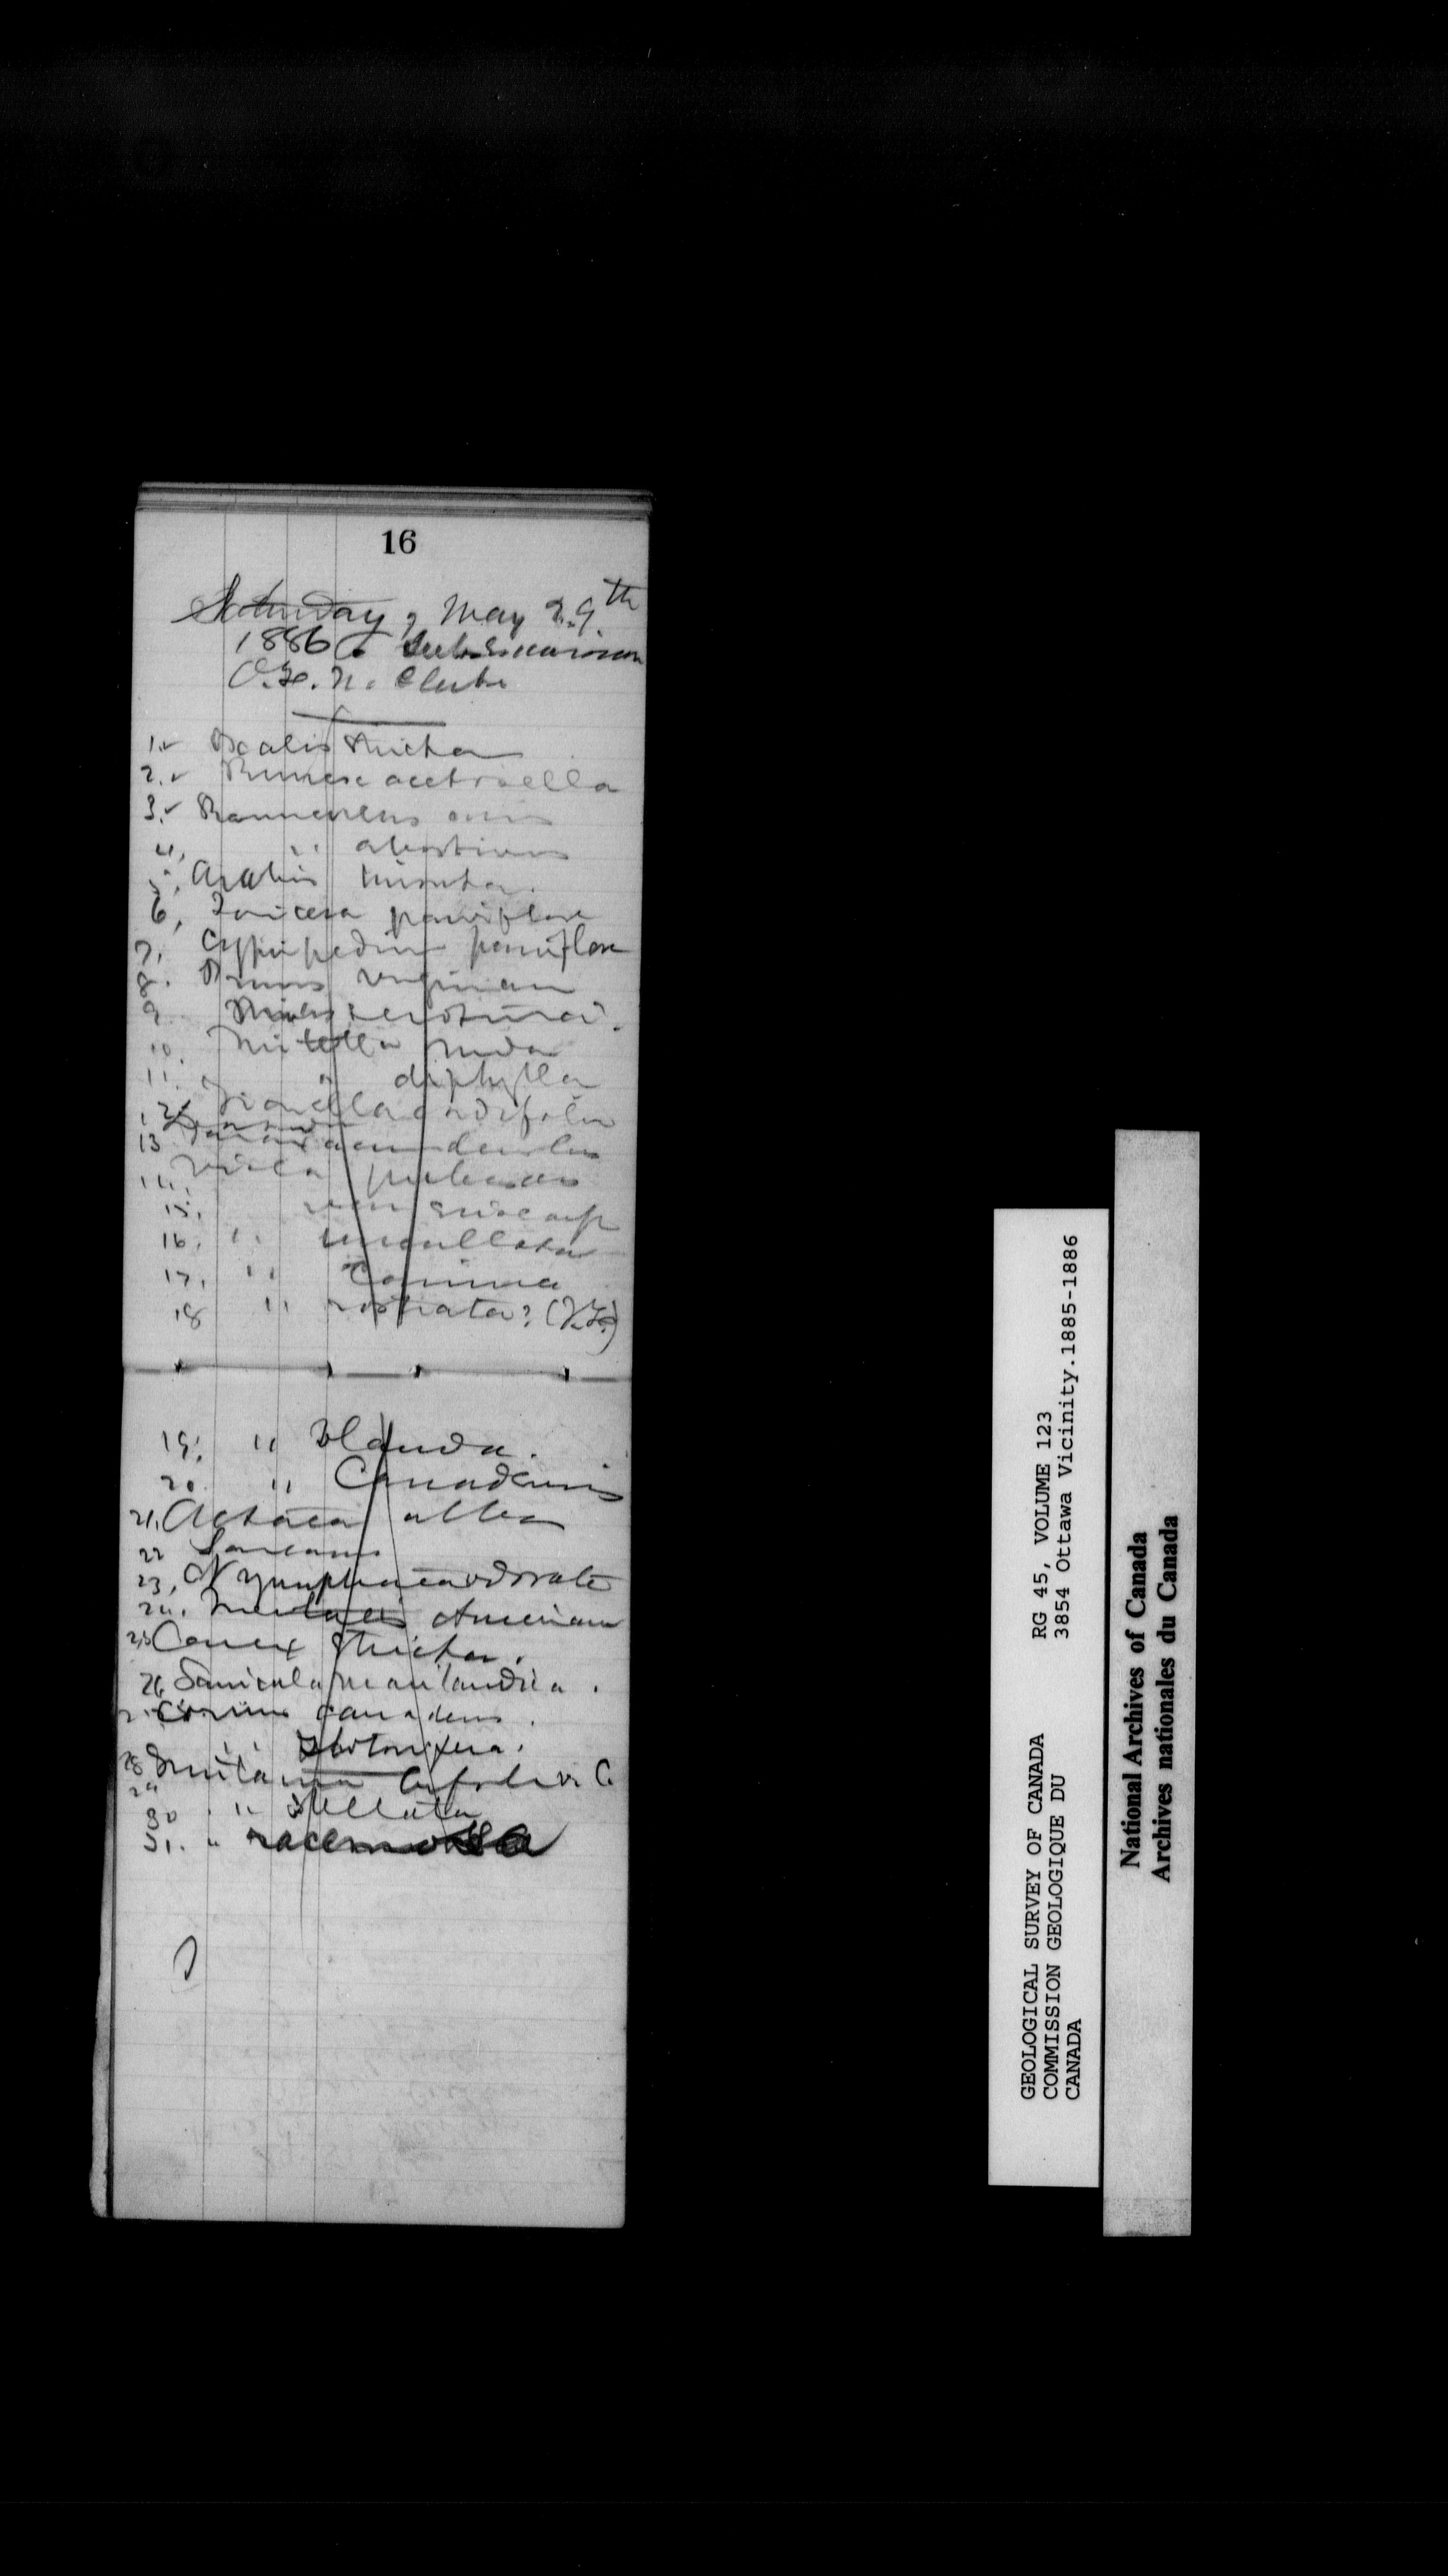 16
Saturday, May 29th
1886. Sub-Excursion
O.F.N. Club
1. Oxalis stricta
2. Rumex acetosella
3. Ranunculus acris
4. " abortivus
5. Arabis hirsuta.
6. Lonicera parviflora
7. Cypripedium parviflor
8. Prunus virginiana
9
10. Mitella nuda
11. " diphylla
12. Tiarella cordifolia
13 Taraxacum dens leo
14. Viola pubescens
15. var eriocarp
16. " cucullata
17. " Canina
18 " rostrata? (J.F.)
19. " blanda.
20 " Canadensis
21. Actaea alba
22
23. Nymphaea odorata
24. Trientalis Americana
25 Carex stricta.
26 Sanicula marilandica.
Cornus canadens.
28 " stolonifera.
29 Smilacina bifolia v. C.
30 " stellata
31. " racemosa
GEOLOGICAL SURVEY OF CANADA
COMMISSION GEOLOGIQUE DU
CANADA
RG 45, VOLUME 123
3854 Ottawa Vicinity.1885-1886
National Archives of Canada
Archives nationales du Canada